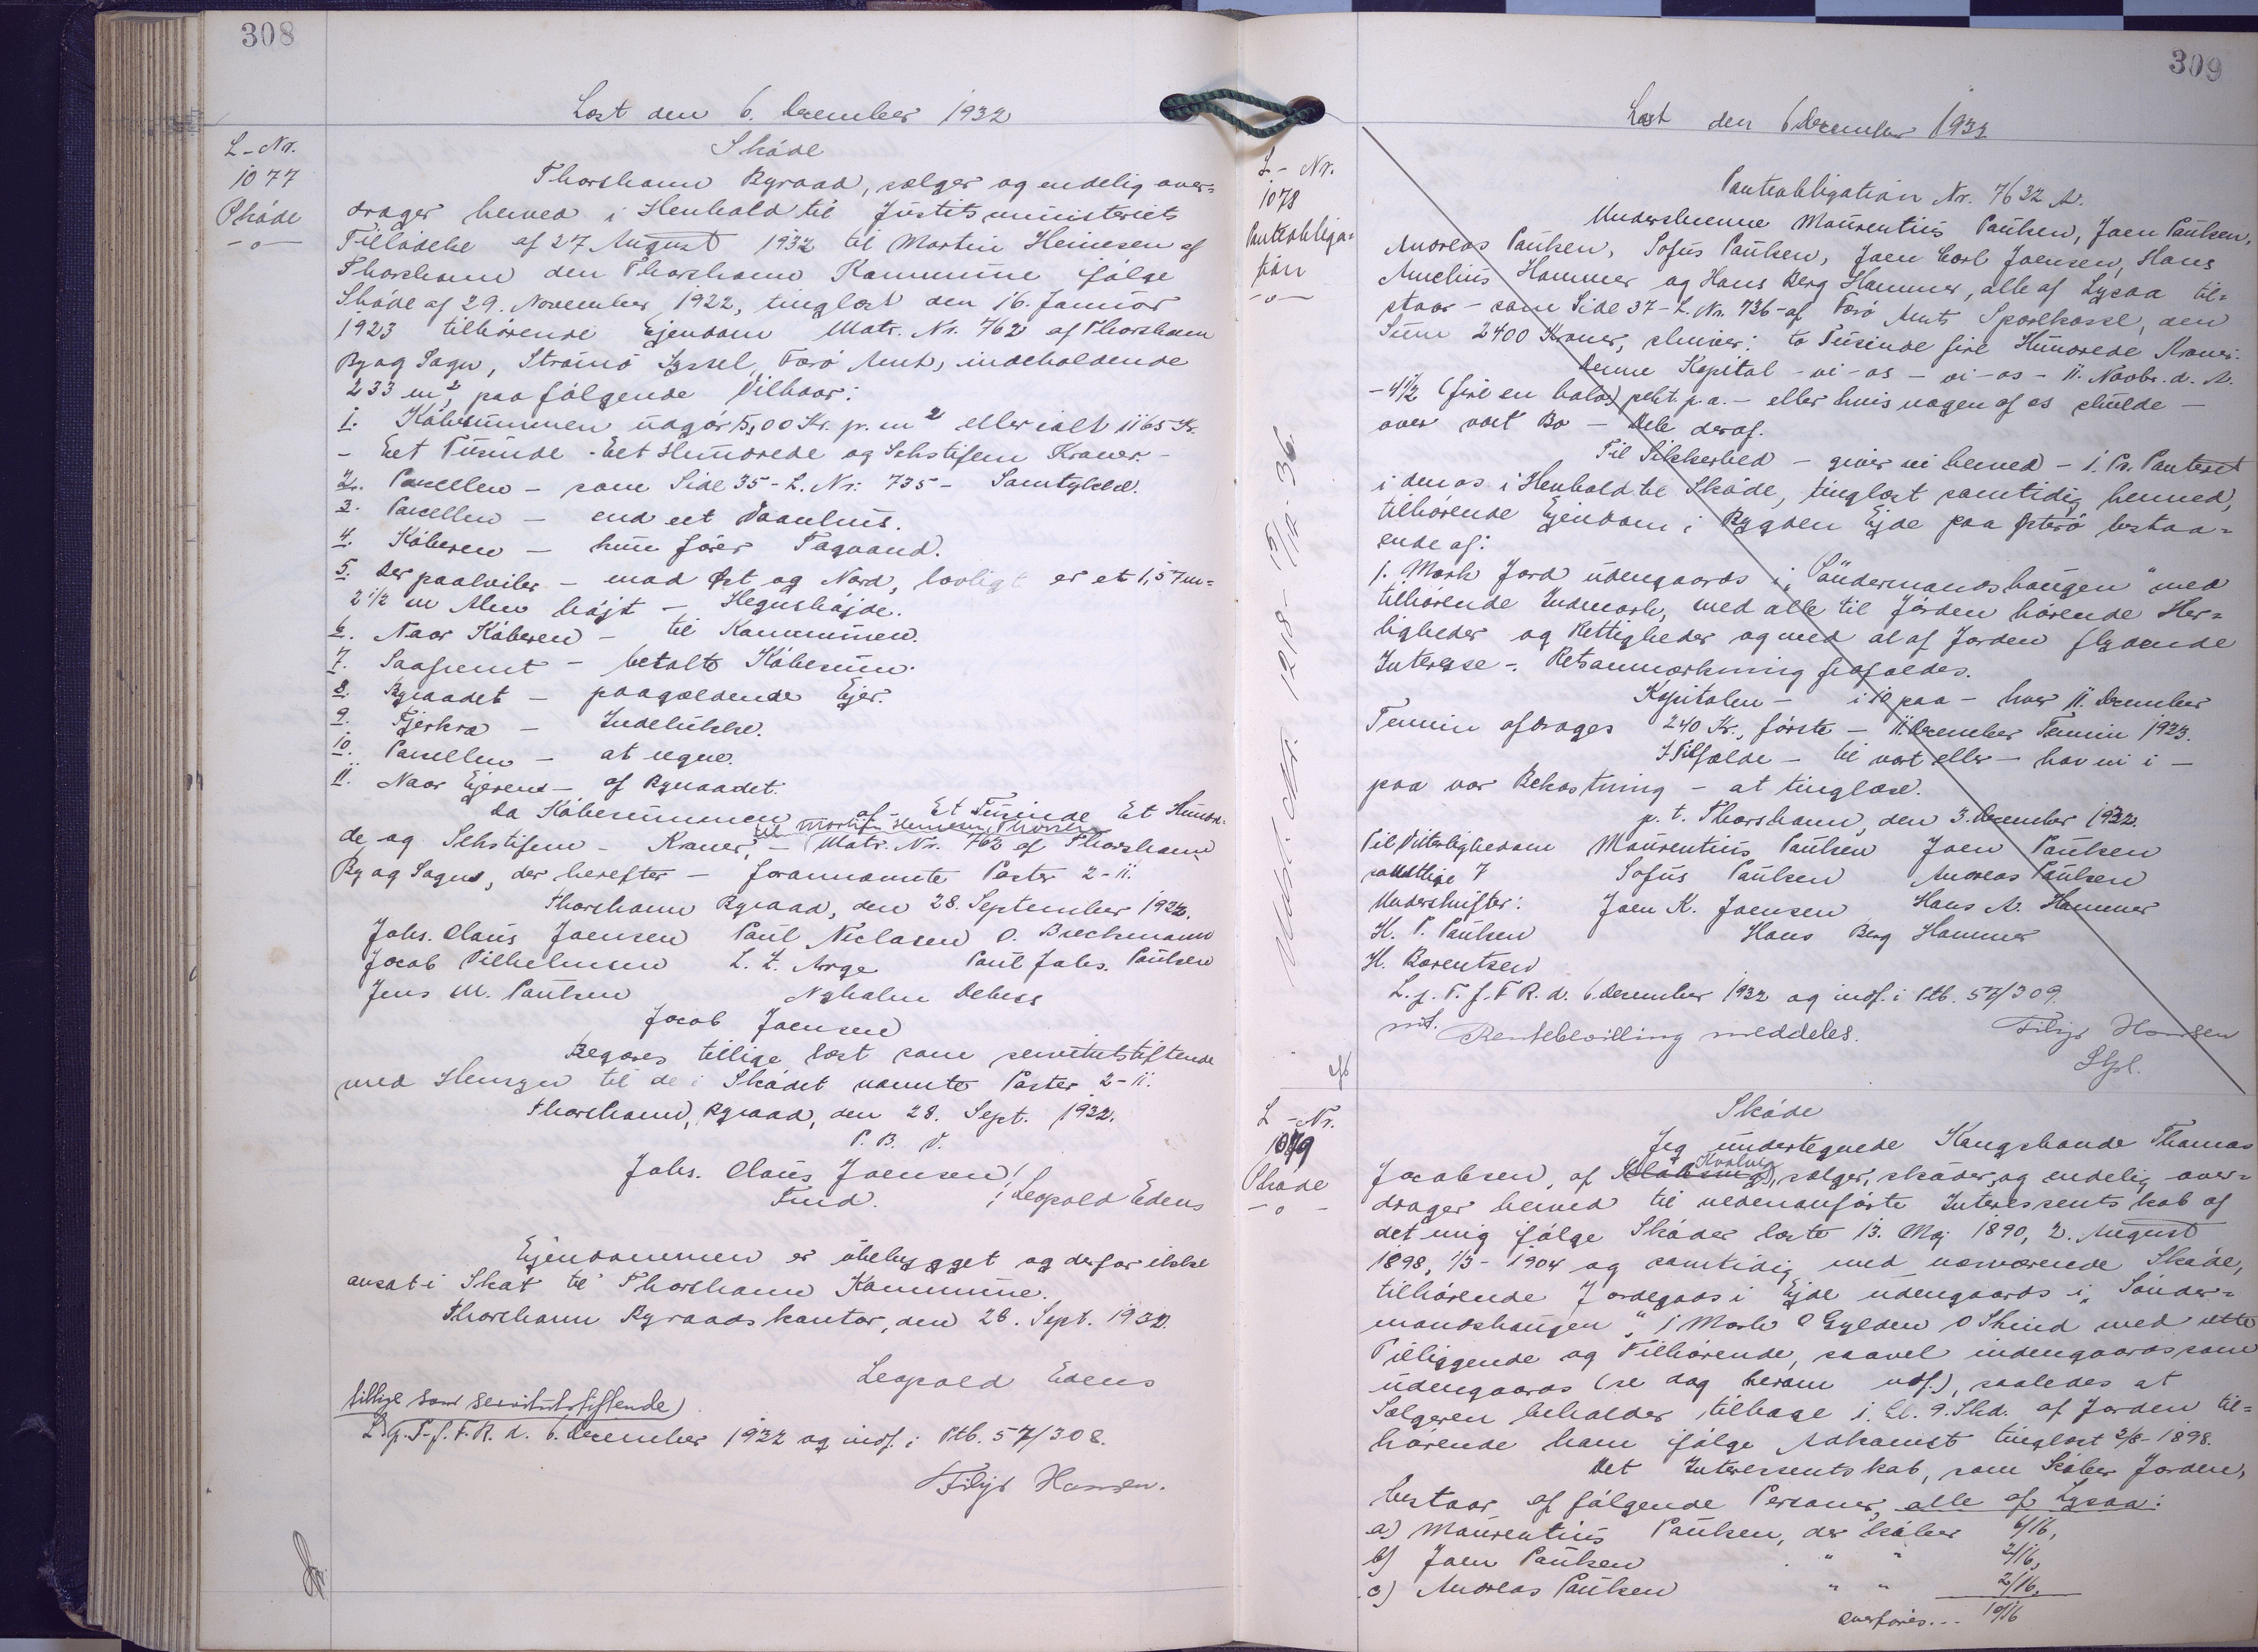 308
Læst den 6. December 1932
L-Nr.
1077
Skøde
Skøde
Thorshavn Byraad, sælger og endelig over=
drager herved i Henhold til Justitsministeriets
Tilladelse af 27 August 1932 til Martin Heinesen af
Thorshavn den Thorshavn Kommune ifølge
Skøde af 29. November 1922, tinglæst den 16. Januar
1923 tilhørende Ejendom Matr. Nr. 762 af Thorshavn
By og Sogn, Strømø Syssel, Færø Amt, indeholdende
233 m², paa følgende Vilkaar:
1. Købesummen udgør 5,00 Kr. pr. m² eller ialt 1165 Kr.
- Eet Tusinde - Eet Hundrede og Sekstifem Kroner. -
2. Parcellen - som Side 35 - L. Nr. 735 - Samtykke.
3. Parcellen - end eet Vaanhus.
4. Køberen - hun fører Tagvand.
5. Der paahviler - mod Øst og Nord, lovligt er et 1,57 m =
2 1/2 m Alen højt - Hegnshøjde.
6. Naar Køberen - til Kommunen.
7. Saafremt - betalte Købesum.
8. Byraadet - paagældende Ejer.
9. Fjerkræ - Indelukke.
10. Parcellen - at regne.
11. Naar Ejeren - af Byraadet.
Da Købesummen af - Et Tusinde Et Hundre=
til Martin Heinesen, Thorshavn
de og Sekstifem - Kroner, - Matr. Nr. 762 af Thorshavn
By og Sogns, der herefter - forannævnte Poster 2-11.
Thorshavn Byraad, den 28. September 1932.
Johs. Olaus Joensen Paul Niclasen O. Brechmann
Jacob Vilhelmsen L. Z. Arge Paul Johs. Paulsen
Jens M. Paulsen Nyholm Debess
Jacob Joensen
Begæres tillige læst som servitutstiftende
med Hensyn til de i Skødet nævnte Poster 2-11.
Thorshavn, Byraad, den 28. Sept. 1932.
P. B. V.
Johs. Olaus Joensen /
Fmd. / Leopold Edens
Ejendommen er ubebygget og derfor ikke
ansat i Skat til Thorshavn Kommune.
Thorshavn Byraadskontor, den 26. Sept. 1932.
Leopold Edens
tillige som servitutstiftende)
L. p. T. f. F. R. d. 6. December 1932 og indf. i Ptb. 57/308.
Filip Hansen.
309
Læst den 6 December 1932
L - Nr.
1078
Pantobliga=
tion
Pantobligation Nr. 7632 A.
Underskrevne Maurentius Paulsen, Joen Paulsen,
Andreas Paulsen, Sofus Paulsen, Joen Carl Joensen, Hans
Amelius Hammer og Hans Berg Hammer, alle af Lysaa til=
staar - som Side 37 - L. Nr. 736 - af Færø Amts Sparekasse, den
Sum 2400 Kroner, skriver: to Tusinde fire Hundrede Kroner.
Denne Kapital - vi - os - vi - os - 11. Novbr. d. A.
- 4 1/2 (fire en halv) pekt. p. a. - eller hvis nogen af os skulde -
over vort Bo - Dele deraf.
Til Sikkerhed - giver vi herved - 1. Pr. Panteret
i den os i Henhold til Skøde, tinglæst samtidig hermed,
tilhørende Ejendom i Bygden Ejde paa Østerø bestaa=
ende af:
1. Mark Jord udengaards i "Söndermandshaugen" med
tilhørende Indmark, med alle til Jorden hørende Her=
ligheder og Rettigheder og med al af Jorden flydende
Interesse -. Retsanmærkning frafaldes.
Kapitalen - i 10 paa - hver 11. December
Termin afdrages 240 Kr., første - 11. December Termin 1923.
I Tilfælde - til vort eller - har vi i -
paa vor Bekostning - at tinglæse.
p. t. Thorshavn, den 3. December 1932.
Til Vitterlighedom Maurentius Paulsen Joen Paulsen
samtlige 7 Sofus Paulsen Andreas Paulsen
Underskrifter: Joen K. Joensen Hans A. Hammer
H. P. Paulsen Hans Berg Hammer
H. Berentsen
L. p. T. f. F. R. d. 6. December 1932 og indf. i Ptb. 57/309.
Rentebevilling meddeles. Filip Hansen
L - Nr.
1079
Skøde
Skøde
Jeg undertegnede Kongsbonde Thomas
Kvalvig
Jacobsen, af Klaksvig, sælger, skøder og endelig over=
drager herved til nedenanførte Interessentskab af
det mig ifølge Skøder læste 13. Maj 1890, 2. August
1898, 1/3 - 1904 og samtidig med nærværende Skøde,
tilhørende Jordegods i Ejde udengaards i "Sönder=
mandshaugen", 1 Mark 0 Gylden 0 Skind med rette
Tilliggende og Tilhørende, saavel indengaards som
udengaards (se dog herom ndf.), saaledes at
Sælgeren beholder tilbage 1. Gl. 9. Skd. af Jorden til=
hørende ham ifølge Adkomst tinglæst 2/8 - 1898.
Det Interessentskab, som køber Jorden,
bestaar af følgende Personer, alle af Lysaa:
a) Maurentius Paulsen, der køber 6/16,
b) Joen Paulsen " " 2/16,
c) Andreas Paulsen " " 2/16,
overføres... 10/16